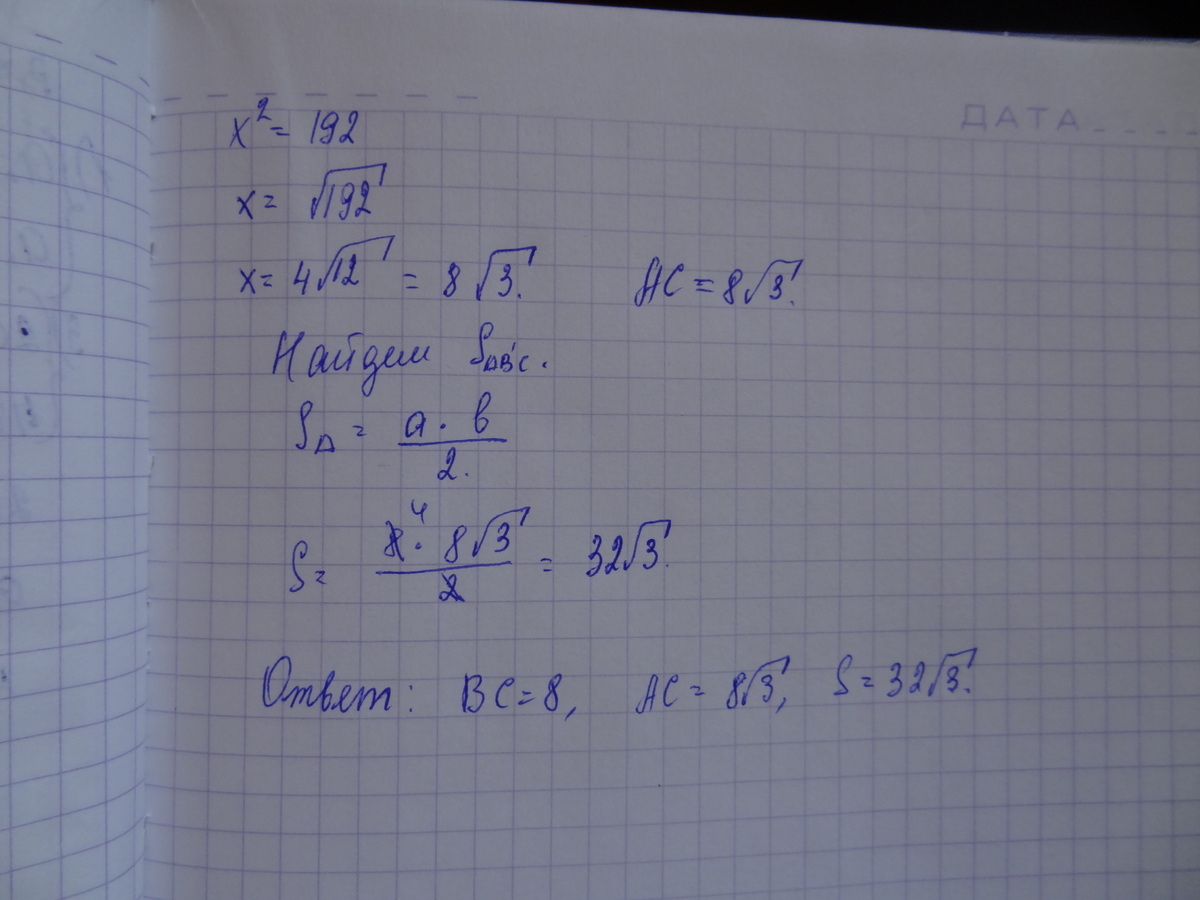 ДАТА
x² = 192
x = √192
x = 4√12 = 8√3. AC = 8√3.
Найдем S_ABC.
S_Δ = a · b / 2.
S = 8⁴ · 8√3 / 2 = 32√3.
Ответ: BC = 8, AC = 8√3, S = 32√3.